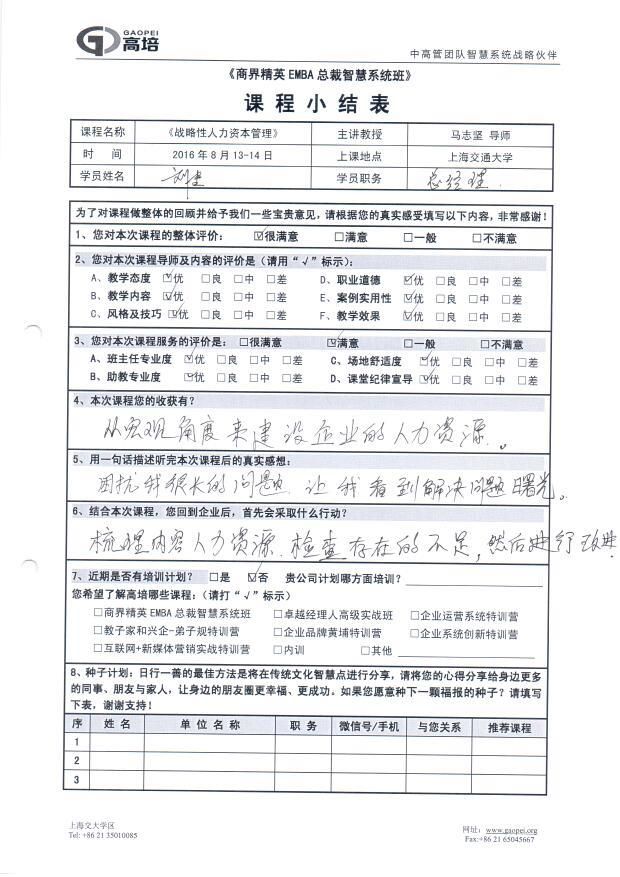 GAOPEI
高培
中高管团队智慧系统战略伙伴
《商界精英EMBA总裁智慧系统班》
课程小结表
课程名称 《战略性人力资本管理》 主讲教授 马志坚 导师
时 间 2016年8月13-14日 上课地点 上海交通大学
学员姓名 学员职务 总经理.
为了对课程做整体的回顾并给予我们一些宝贵意见，请根据您的真实感受填写以下内容，非常感谢！
1、您对本次课程的整体评价： ☑很满意 □满意 □一般 □不满意
2、您对本次课程导师及内容的评价是（请用“√”标示）：
A、教学态度 ☑优 □良 □中 □差 D、职业道德 ☑优 □良 □中 □差
B、教学内容 ☑优 □良 □中 □差 E、案例实用性 ☑优 □良 □中 □差
C、风格及技巧 ☑优 □良 □中 □差 F、教学效果 ☑优 □良 □中 □差
3、您对本次课程服务的评价是： □很满意 ☑满意 □一般 □不满意
A、班主任专业度 ☑优 □良 □中 □差 C、场地舒适度 ☑优 □良 □中 □差
B、助教专业度 ☑优 □良 □中 □差 D、课堂纪律宣导 ☑优 □良 □中 □差
4、本次课程您的收获有？
从宏观角度来建设企业的人力资源.。
5、用一句话描述听完本次课程后的真实感想：
困扰我很长的问题 让我看到解决问题曙光。
6、结合本次课程，您回到企业后，首先会采取什么行动？
梳理内容人力资源.检查存在的不足，然后进行改进
7、近期是否有培训计划？ □是 ☑否 贵公司计划哪方面培训？
您希望了解高培哪些课程：（请打“√”标示）
□商界精英EMBA总裁智慧系统班 □卓越经理人高级实战班 □企业运营系统特训营
□教子家和兴企-弟子规特训营 □企业品牌黄埔特训营 □企业系统创新特训营
□互联网+新媒体营销实战特训营 □内训 □其他
8、种子计划：日行一善的最佳方法是将在传统文化智慧点进行分享，请将您的心得分享给身边更多
的同事、朋友与家人，让身边的朋友圈更幸福、更成功。如果您愿意种下一颗福报的种子？请填写
下表，谢谢支持！
序 姓 名 单 位 名 称 职 务 微信号/手机 与您关系 推荐课程
1
2
3
上海交大学区 网址：www.gaopei.org
Tel: +86 21 35010085 Fax:+86 21 65045667